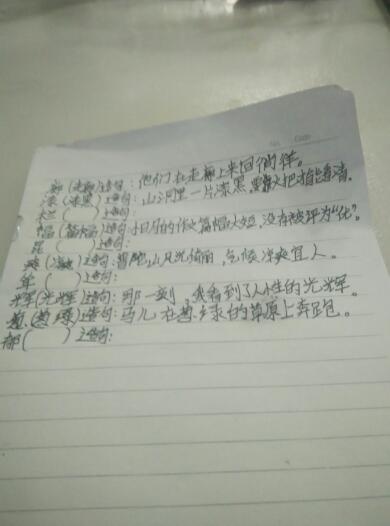 廊(走廊)造句:他们在走廊上来回徜徉。
漆(漆黑)造句:山洞里一片漆黑,需火把才能看清。
兰( )造句:
幅(篇幅)造句:小日月的作文篇幅太短,没有被评为“优”。
昆( )造句:
爽(凉爽)造句:普陀山风光绮丽,气候凉爽宜人。
年( )造句:
辉(光辉)造句:那一刻,我看到了人性的光辉。
葱(葱绿)造句:马儿在葱绿的草原上奔跑。
郁( )造句: